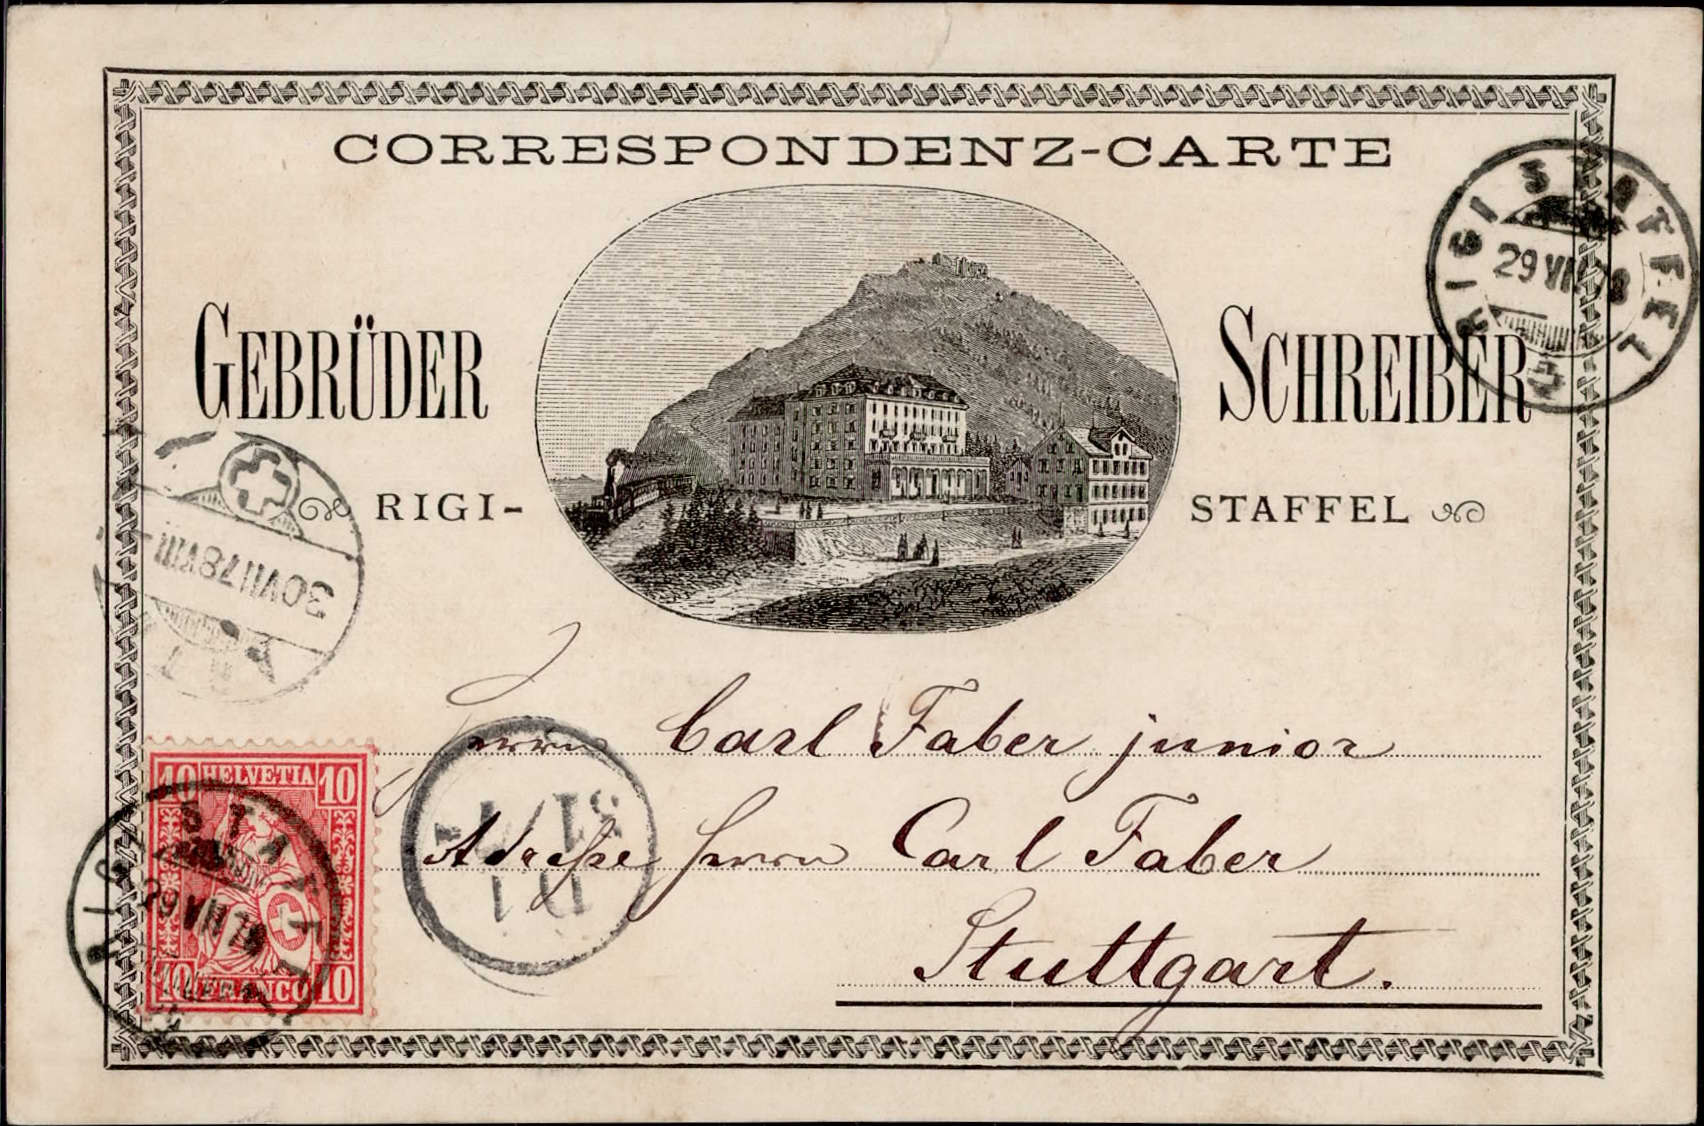 CORRESPONDENZ-CARTE
GEBRÜDER SCHREIBER
RIGI- STAFFEL
RIGI STAFFEL
29 VII 78
30 VII 78 VIII
Herrn Carl Faber junior
Adresse Herrn Carl Faber
Stuttgart.
10 HELVETIA 10
10 FRANCO 10
RIGI STAFFEL
29 VII 78
31/7